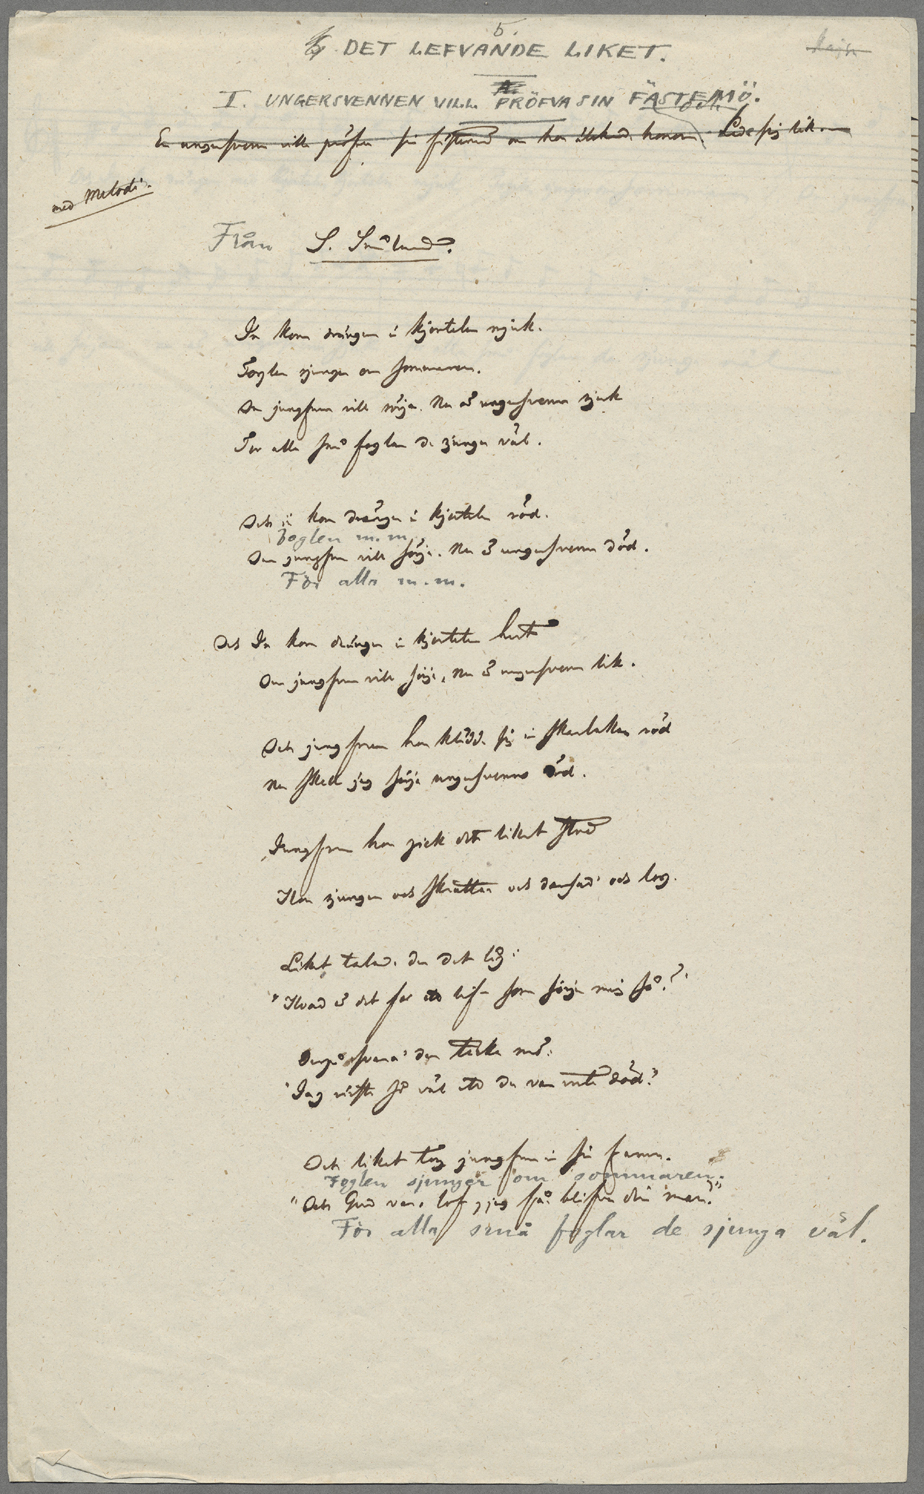 5.
DET LEFVANDE LIKET.
I. UNGERSVENNEN VILL PRÖFVA SIN FÄSTEMÖ.
En ungersven ville pröfva sin fästemö om hon älskade honom. Lade sig lik.
med Melodi.
Från S. Småland.
In kom drängen i kjortelen mjuk.
Foglen sjunger om sommaren.
Den jungfrun vill sörja. Nu är ungersvennen sjuk
För alla små foglar de sjunga väl.
Och in kom drängen i kjortelen röd.
Foglen m.m.
Den jungfrun vill sörja. Nu är ungersvennen död.
För alla m.m.
Och In kom drängen i kjortelen hvit
Den jungfrun vill sörja, Nu är ungersvennen lik.
Och jungfrun hon klädde sig in skarlakan röd
Nu skall jag sörja ungersvennens död.
Jungfrun hon gick dit liket stod
Hon sjunger och skrattar och dansad' och log.
Liket talade der det låg:
"Hvad är det för lif som sörja mig så?"
Derpå svara' den täcka mö:
"Jag visste så väl att du var inte död."
Och liket tog jungfrun i sin famn.
Foglen sjunger om sommaren.
"Och Gud vare lof, jag får blifva din man."
För alla små foglar de sjunga väl.